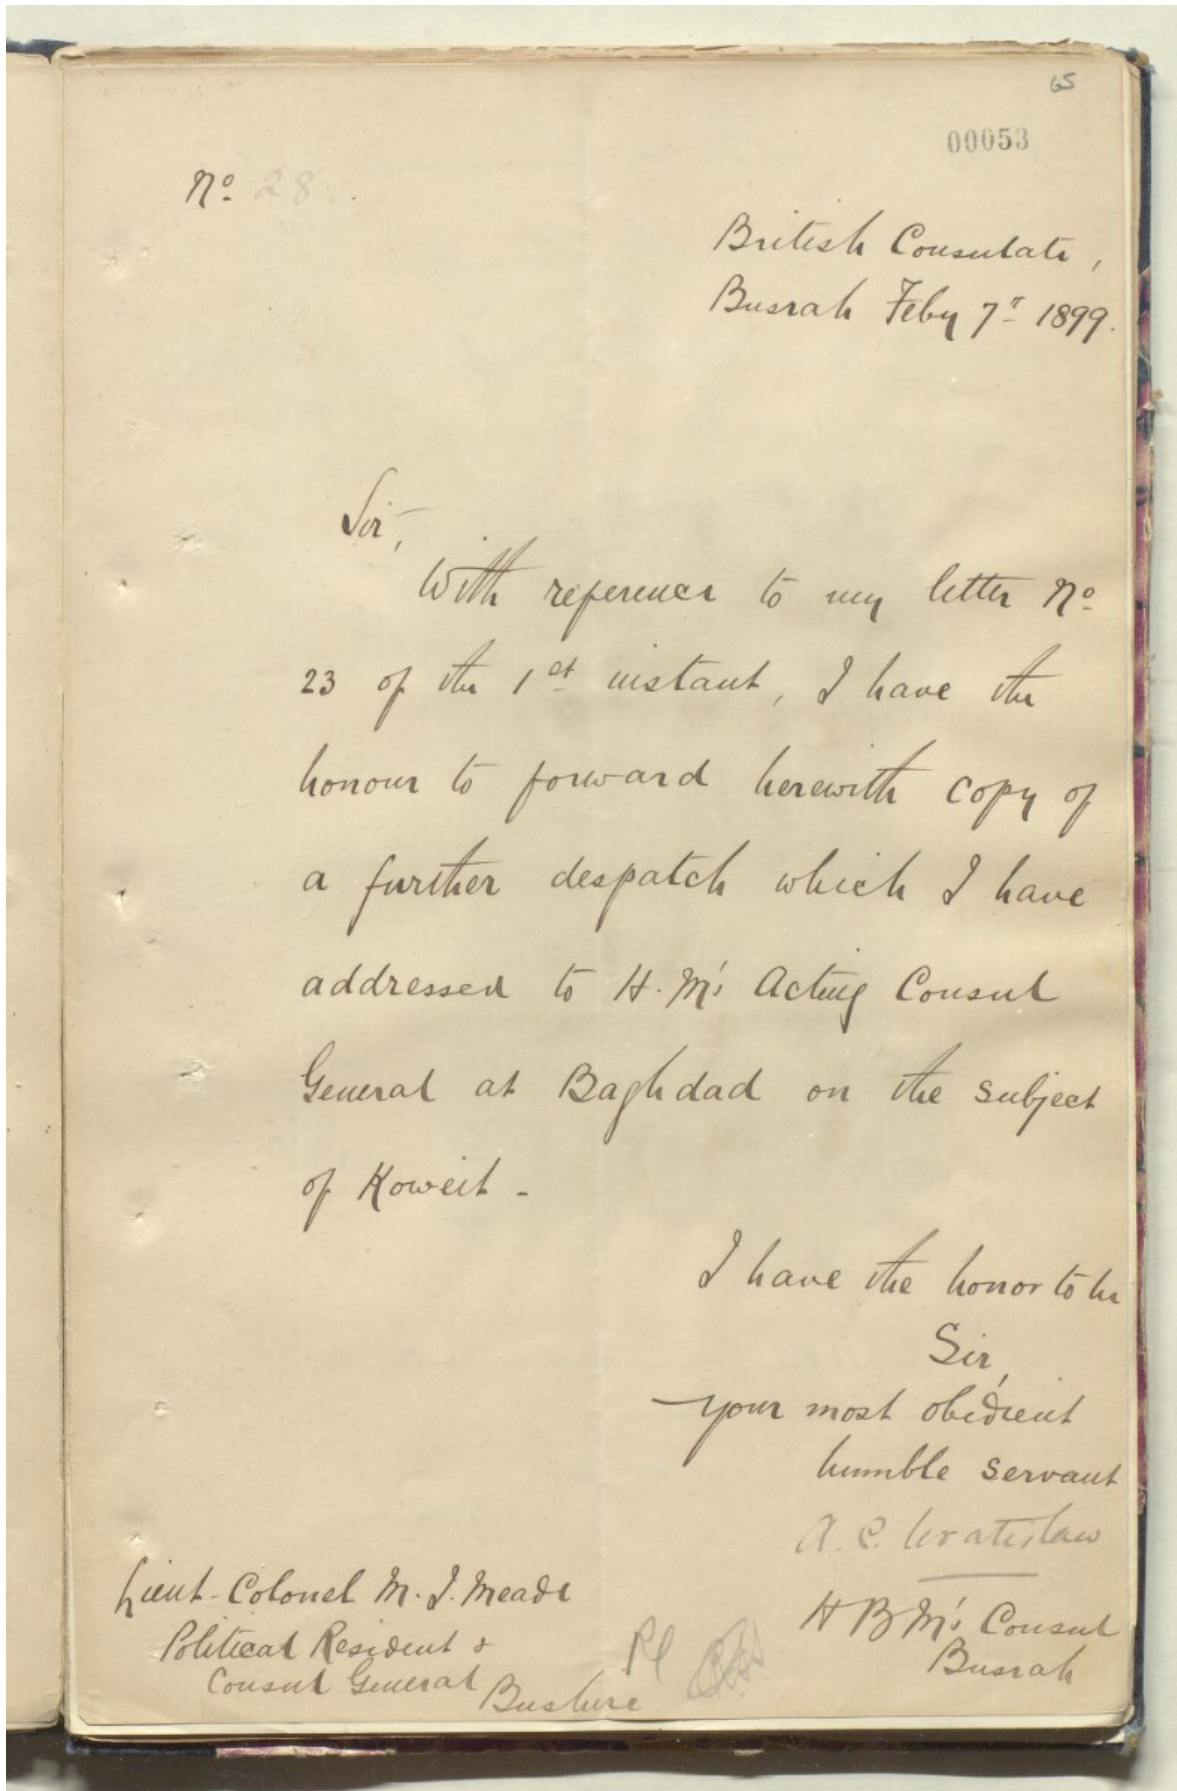 65
00053
No. 28.
British Consulate,
Busrah Feby 7th 1899.
Sir,
With reference to my letter No.
23 of the 1st instant, I have the
honour to forward herewith copy of
a further despatch which I have
addressed to H.M's Acting Consul
General at Baghdad on the subject
of Koweit -
I have the honor to be
Sir,
your most obedient
humble servant
A. C. Wratislaw
H B M's Consul
Busrah
Lieut-Colonel M. J. Meade
Political Resident &
Consul General Bushire